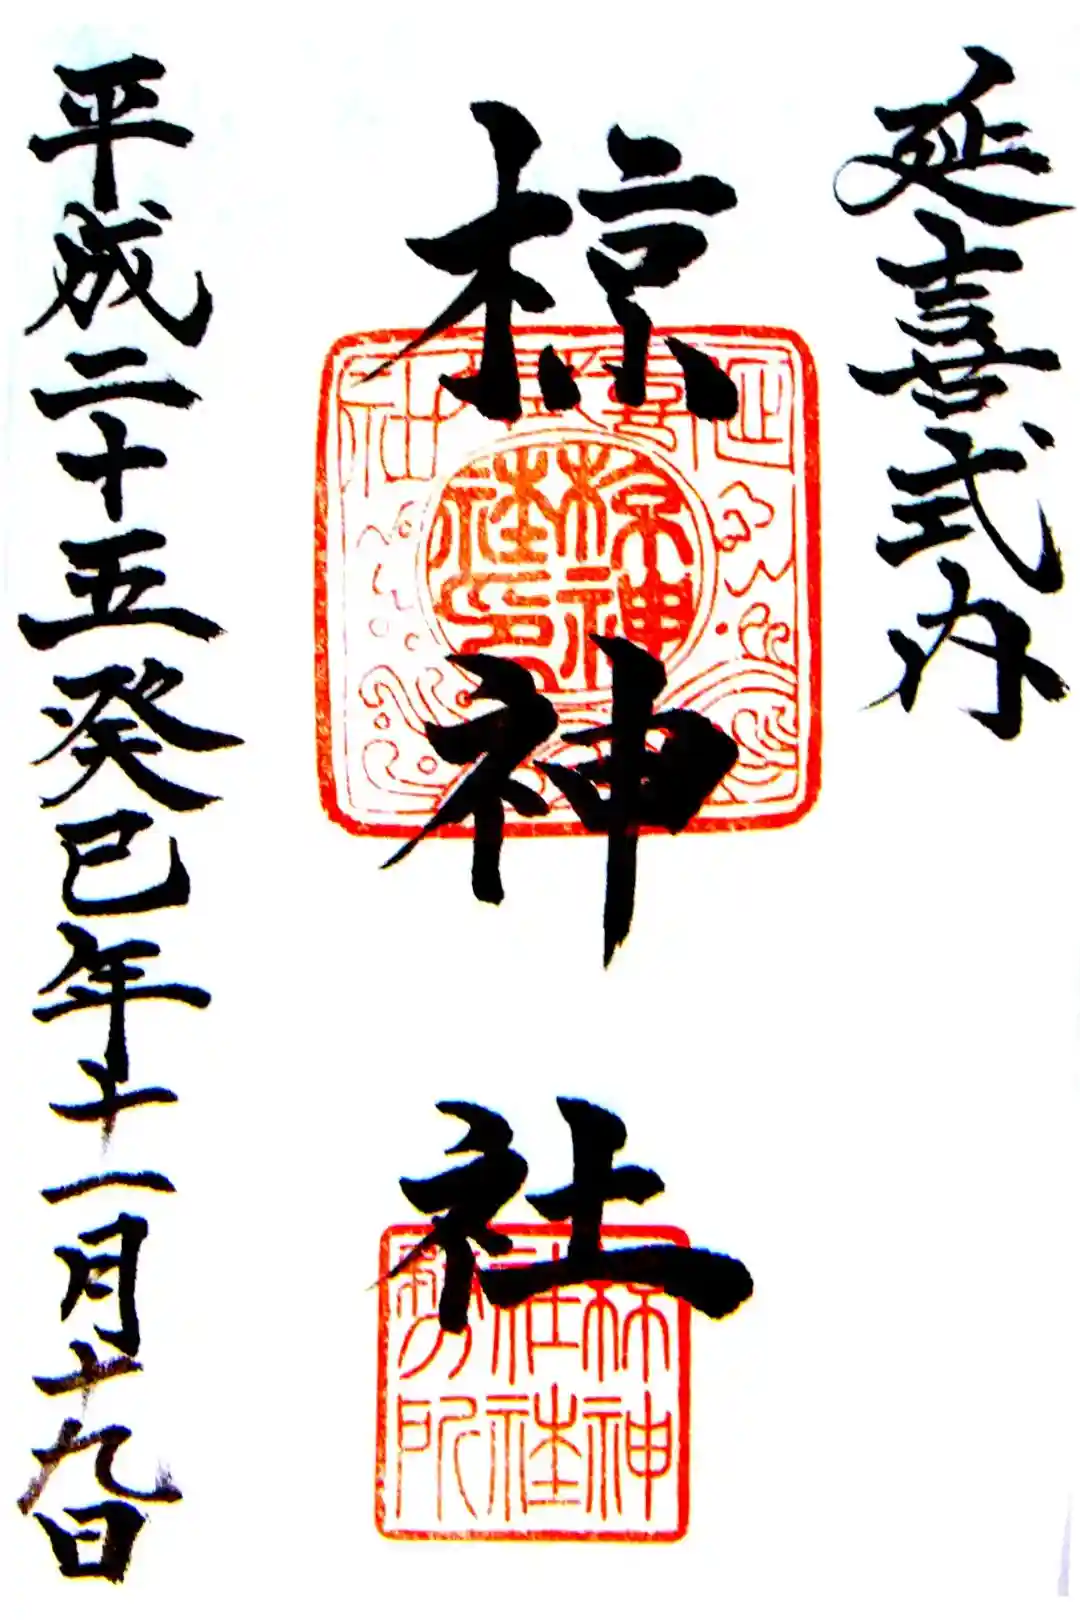 延喜式内
椋神社
平成二十五癸巳年十一月十九日
椋神社社務所